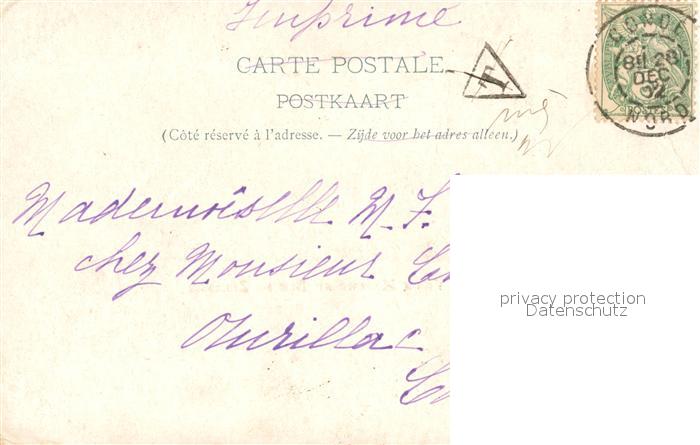 Imprimé
CARTE POSTALE
T
POSTKAART
(Côté réservé à l'adresse. — Zijde voor het adres alleen.)
8E 28
DEC
02
NORD
Mademoiselle M. F.
chez Monsieur
Aurillac
privacy protection
Datenschutz